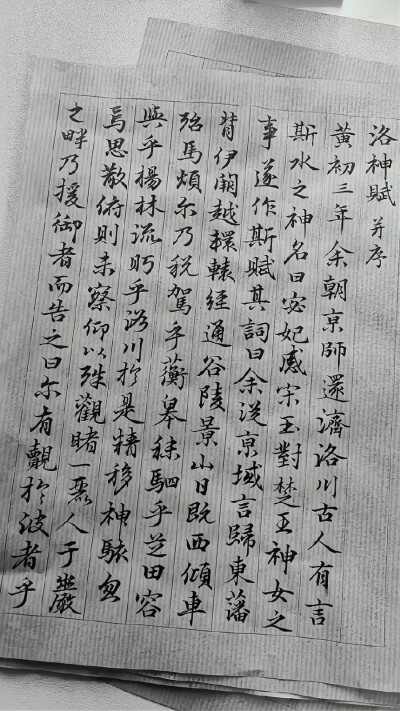 洛神賦 并序
黃初三年余朝京師還濟洛川古人有言
斯水之神名曰宓妃感宋玉對楚王神女之
事遂作斯賦其詞曰余從京域言歸東藩
背伊闕越轘轅經通谷陵景山日既西傾車
殆馬煩尔乃稅駕乎蘅皋秣駟乎芝田容
與乎楊林流眄乎洛川於是精移神駭忽
焉思散俯則未察仰以殊觀睹一麗人于巖
之畔乃援御者而告之曰尔有覿於彼者乎